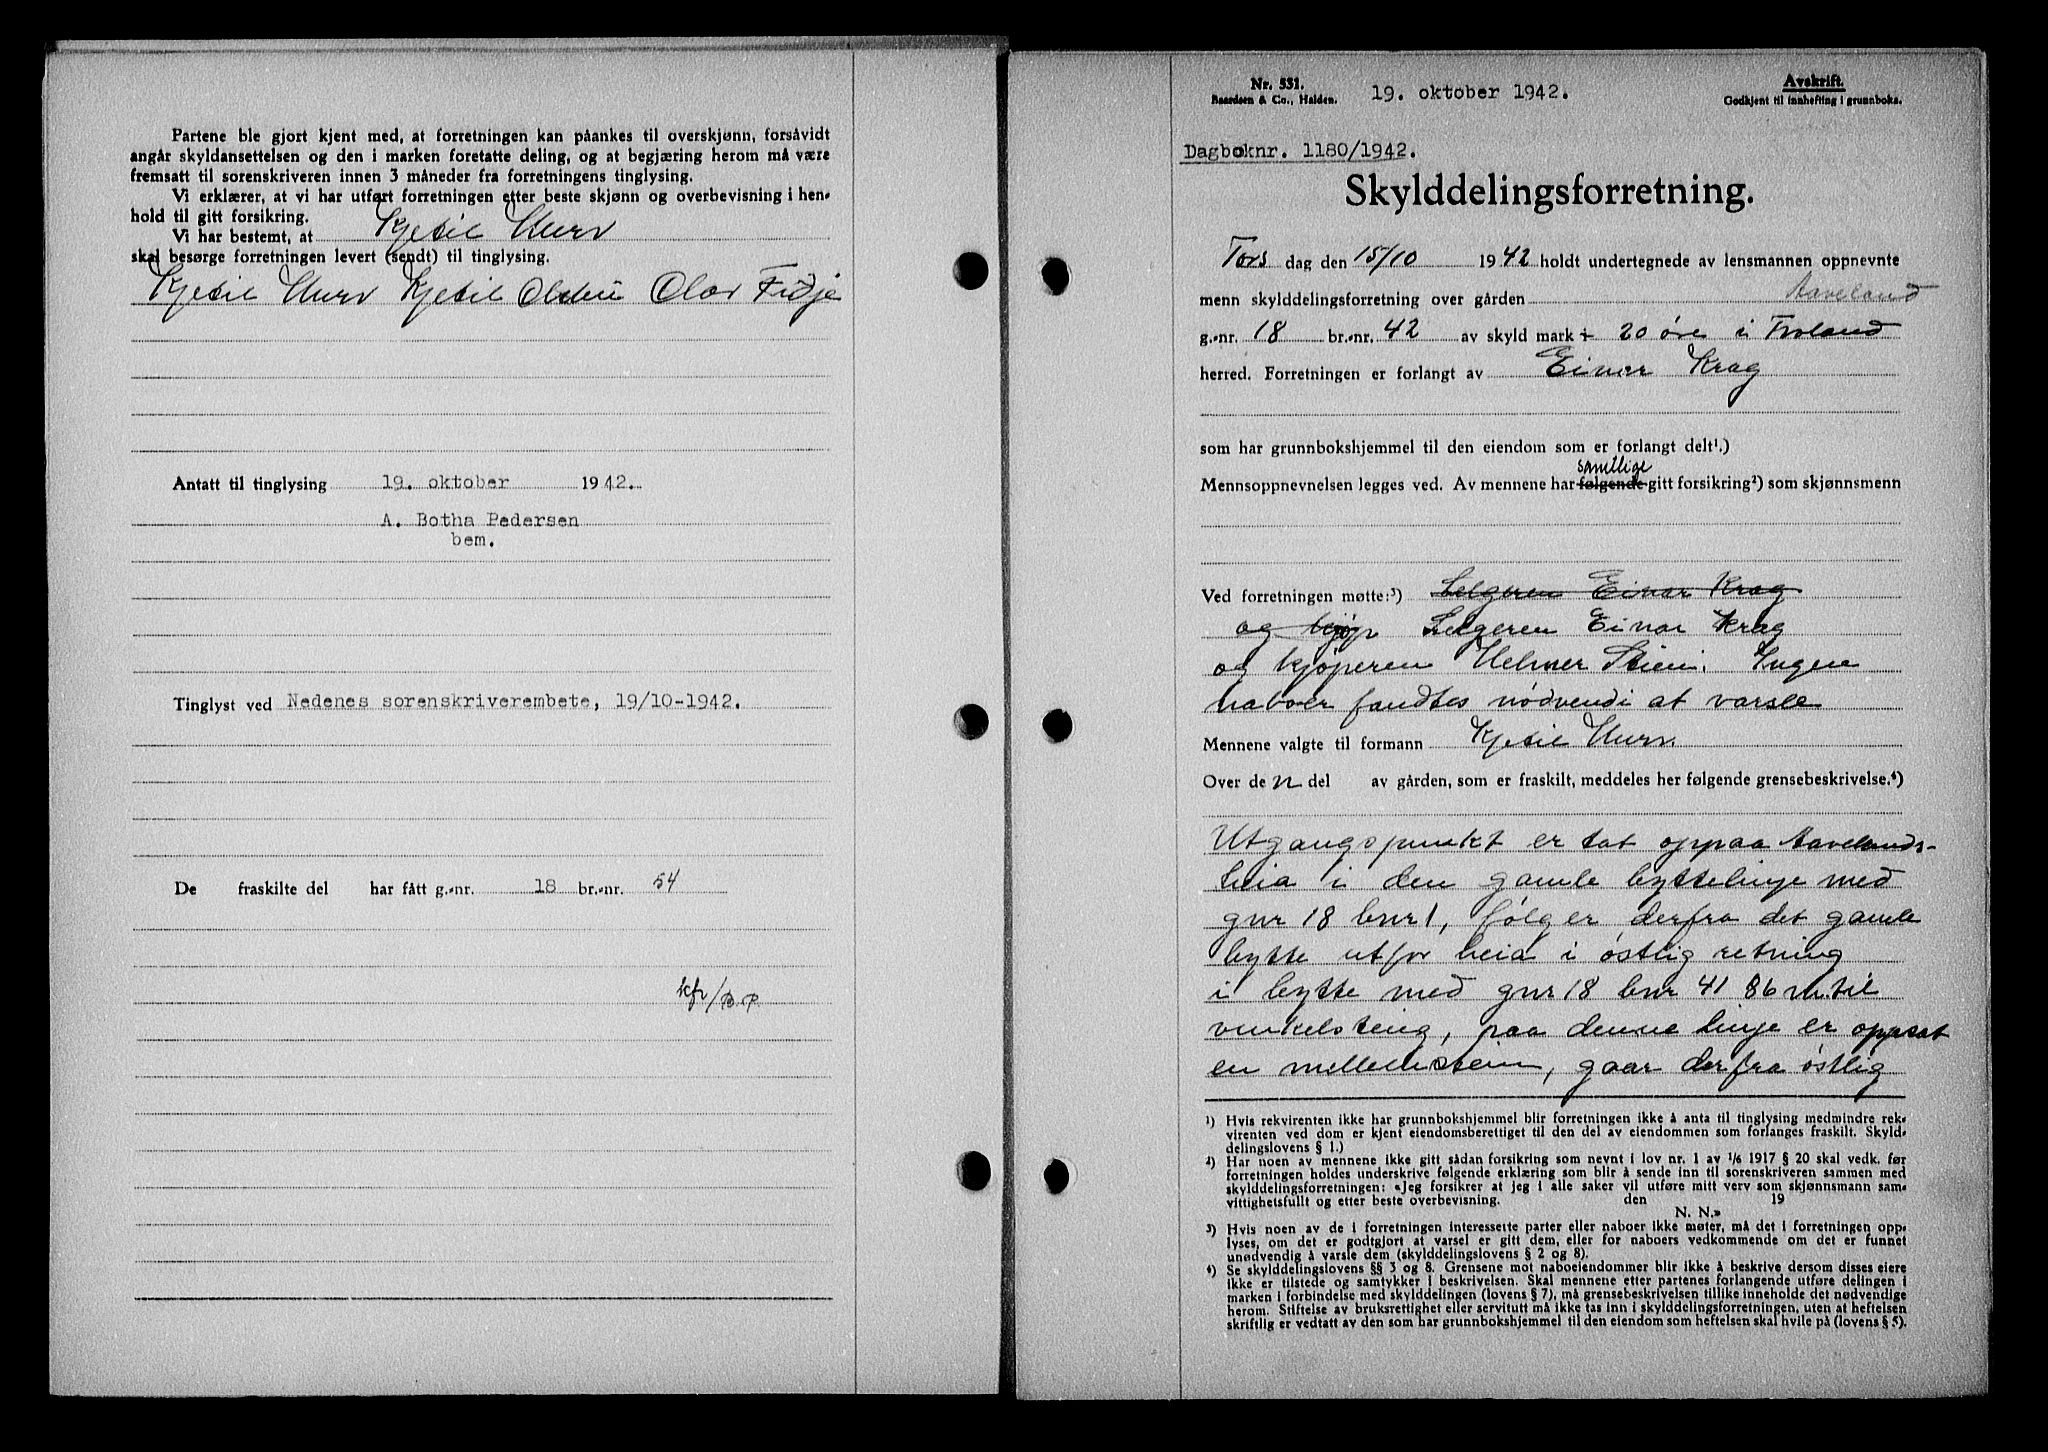 Partene ble gjort kjent med, at forretningen kan påankes til overskjønn, forsåvidt
angår skyldansettelsen og den i marken foretatte deling, og at begjæring herom må være
fremsatt til sorenskriveren innen 3 måneder fra forretningens tinglysing.
Vi erklærer, at vi har utført forretningen etter beste skjønn og overbevisning i hen-
hold til gitt forsikring.
Vi har bestemt, at Kjetil Hurv
skal besørge forretningen levert (sendt) til tinglysing.
Kjetil Hurv Kjetil Olav Fidje
Antatt til tinglysing 19. oktober 1942.
A. Botha Pedersen
bem.
Tinglyst ved Nedenes sorenskriverembete, 19/10-1942.
De fraskilte del har fått g.-nr. 18 br.-nr. 54
kfr/B.P.
Nr. 531.
Baardsen & Co., Halden.
19. oktober 1942.
Avskrift.
Godkjent til innhefting i grunnboka.
Dagboknr. 1180/1942.
Skylddelingsforretning.
Tors dag den 15/10 1942 holdt undertegnede av lensmannen oppnevnte
menn skylddelingsforretning over gården Aaveland
g.-nr. 18 br.-nr. 42 av skyld mark 20 øre i Froland
herred. Forretningen er forlangt av Einar Krag
som har grunnbokshjemmel til den eiendom som er forlangt delt¹.)
samtlige
Mennsoppnevnelsen legges ved. Av mennene har følgende gitt forsikring²) som skjønnsmenn
Ved forretningen møtte:³) Selgeren Einar Krag
og kjøp Selgeren Einar Krag
og kjøperen Helmer Stiem. Ingen
naboer fandtes nødvendi at varsle
Mennene valgte til formann Kjetil Hurv.
Over de n del av gården, som er fraskilt, meddeles her følgende grensebeskrivelse.⁴)
Utgangspunkt er tat oppaa Aavelands-
heia i den gamle byttelinje med
gnr 18 bnr 1, følger derfra det gamle
bytte utfor heia i østlig retning
i bytte med gnr 18 bnr 41 86 m. til
vinkelsteing, paa denne linje er oppsat
en mellemstein, gaar derfra østlig
¹) Hvis rekvirenten ikke har grunnbokshjemmel blir forretningen ikke å anta til tinglysing medmindre rek-
virenten ved dom er kjent eiendomsberettiget til den del av eiendommen som forlanges fraskilt. Skyld-
delingslovens § 1.)
²) Har noen av mennene ikke gitt sådan forsikring som nevnt i lov nr. 1 av 1/6 1917 § 20 skal vedk. før
forretningen holdes underskrive følgende erklæring som blir å sende inn til sorenskriveren sammen med
skylddelingsforretningen: «Jeg forsikrer at jeg i alle saker vil utføre mitt verv som skjønnsmann sam-
vittighetsfullt og etter beste overbevisning. den 19
N. N.»
³) Hvis noen av de i forretningen interesserte parter eller naboer ikke møter, må det i forretningen opp-
lyses, om det er godtgjort at varsel er gitt dem, eller for naboers vedkommende om det er funnet
unødvendig å varsle dem (skylddelingslovens § 2 og 8).
⁴) Se skylddelingslovens §§ 3 og 8. Grensene mot naboeiendommer blir ikke å beskrive dersom disses eiere
ikke er tilstede og samtykker i beskrivelsen. Skal mennene etter partenes forlangende utføre delingen i
marken i forbindelse med skylddelingen (lovens § 7), må grensebeskrivelsen tillike inneholde det nødvendige
herom. Stiftelse av bruksrettighet eller servitutt må ikke tas inn i skylddelingsforretningen, uten at heftelsen
skriftlig er vedtatt av den som har grunnbokshjemmel til den eiendom som heftelsen skal hvile på (lovens § 5).